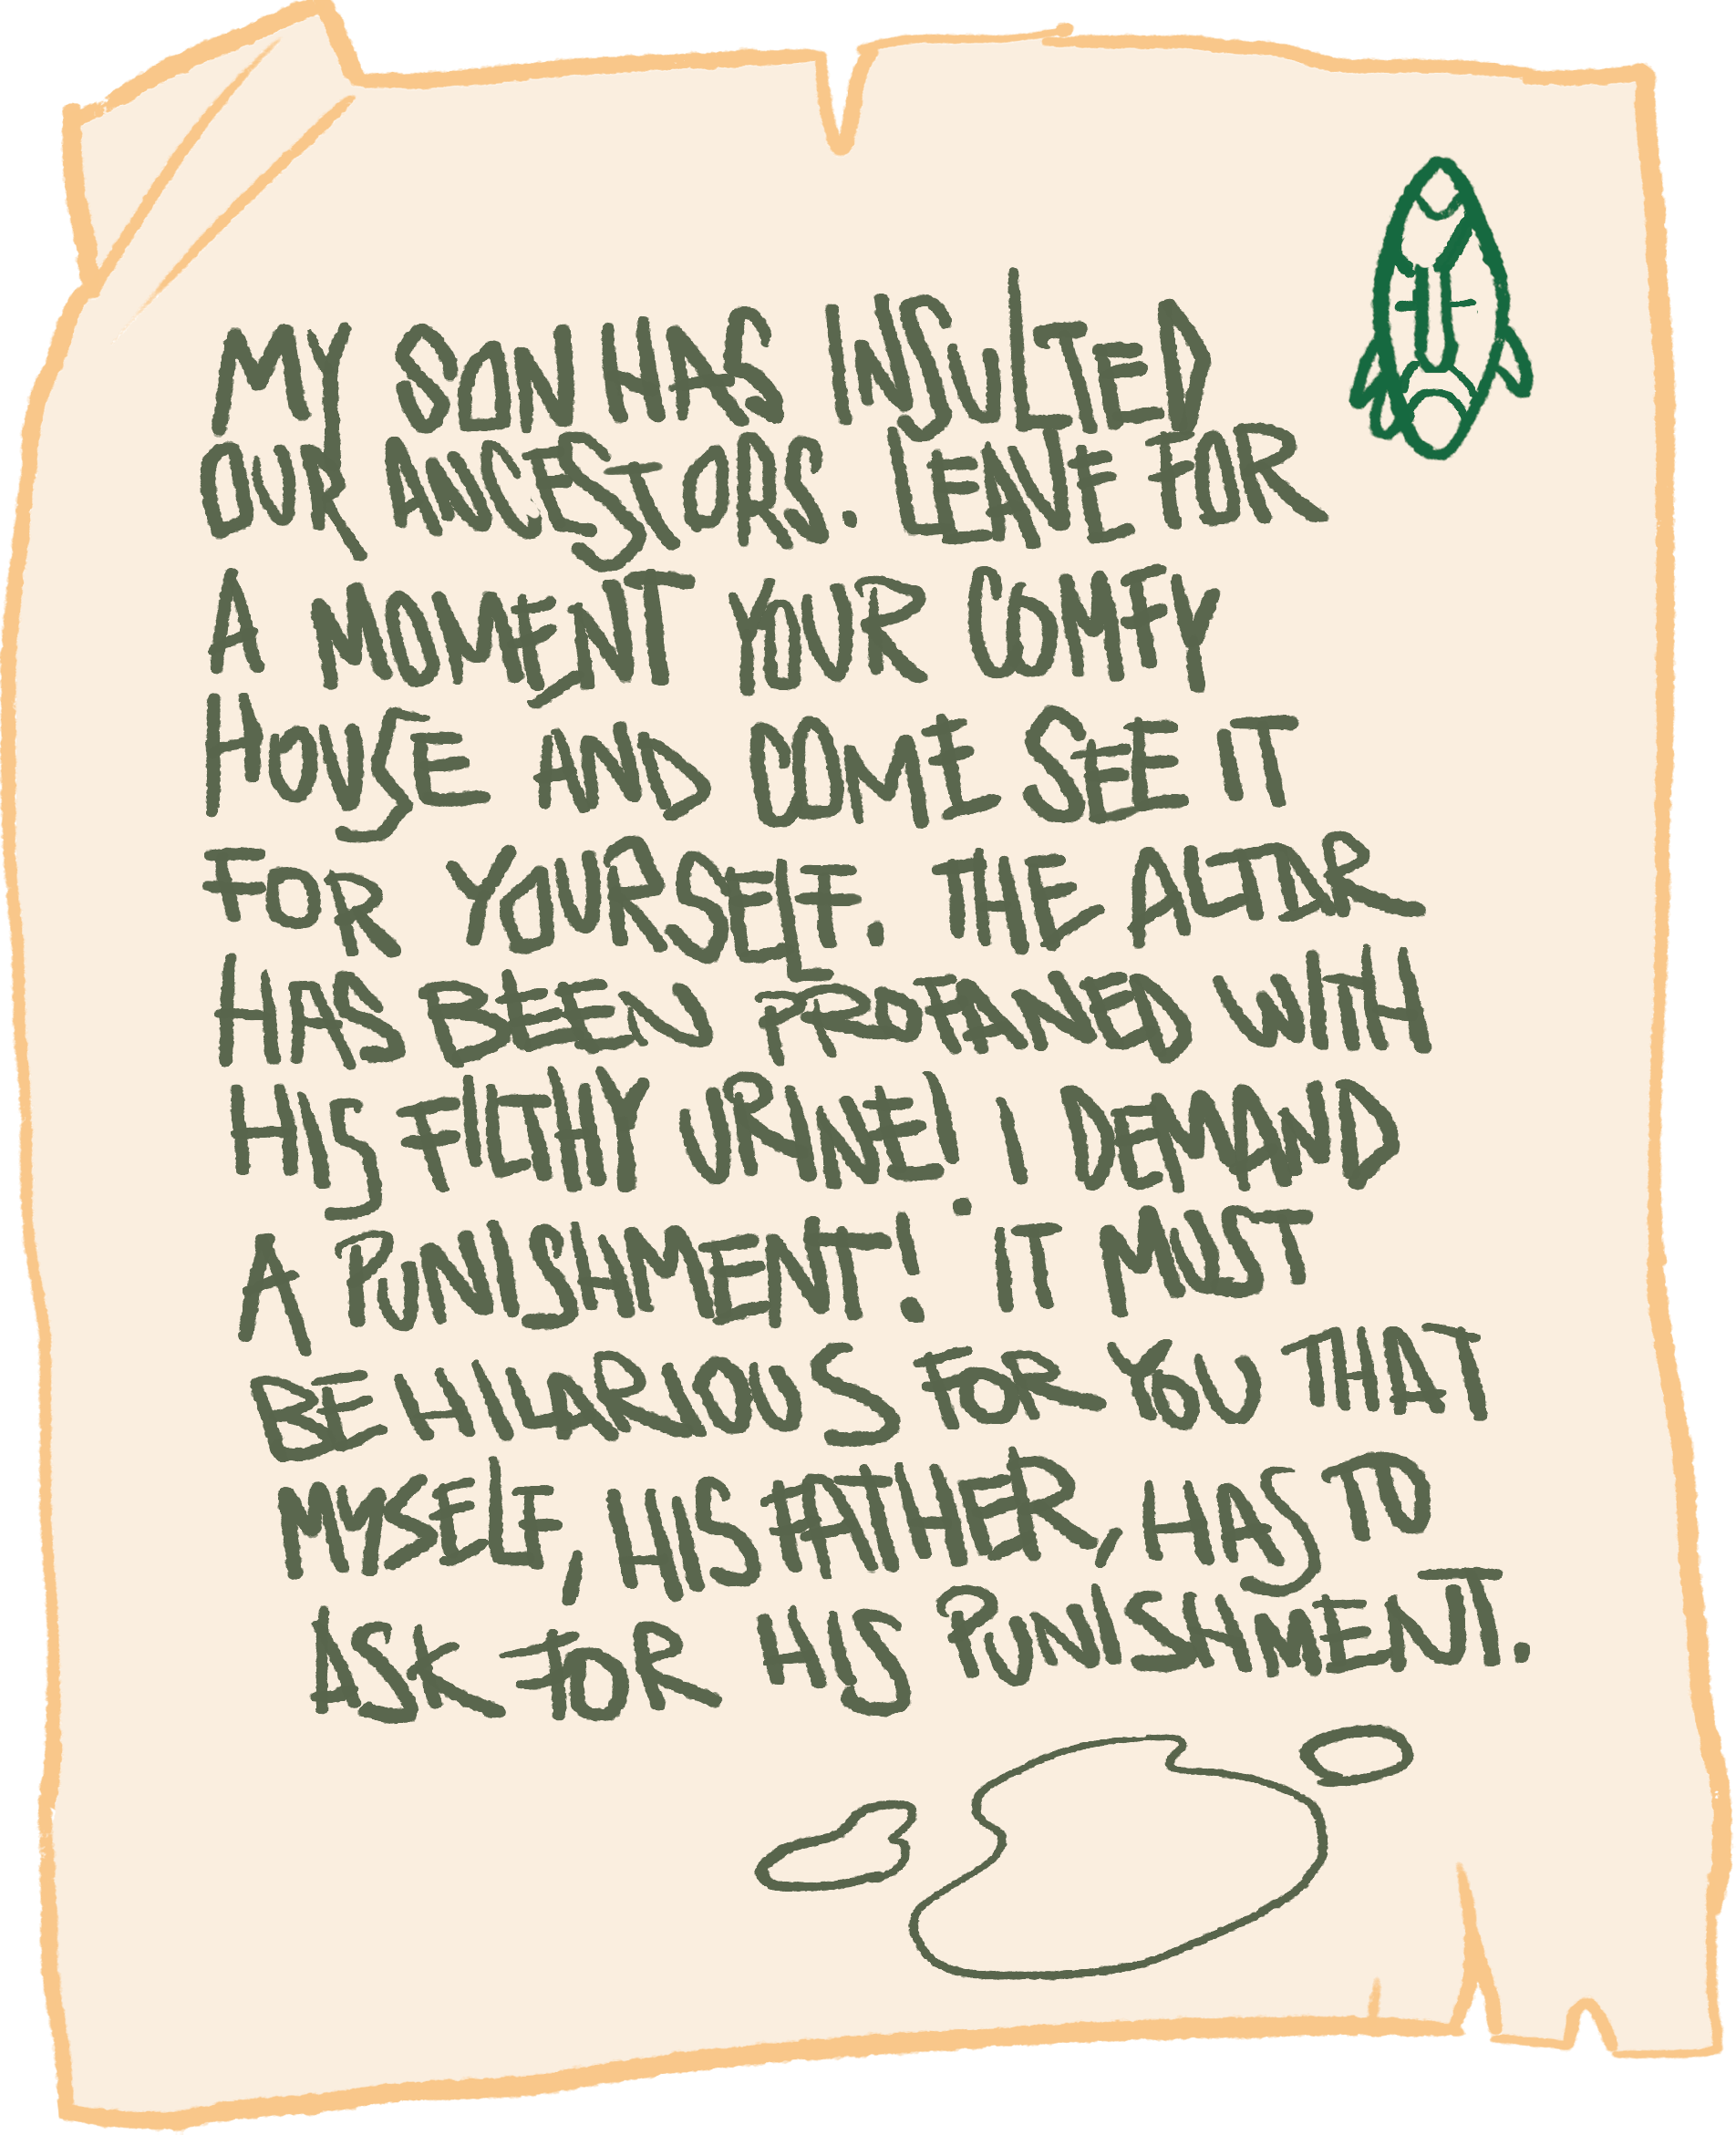 MY SON HAS INSULTED
OUR ANCESTORS. LEAVE FOR
A MOMENT YOUR COMFY
HOUSE AND COME SEE IT
FOR YOURSELF. THE ALTAR
HAS BEEN PROFANED WITH
HIS FILTHY URINE! I DEMAND
A PUNISHMENT! IT MUST
BE HILARIOUS FOR YOU THAT
MYSELF, HIS FATHER, HAS TO
ASK FOR HIS PUNISHMENT.